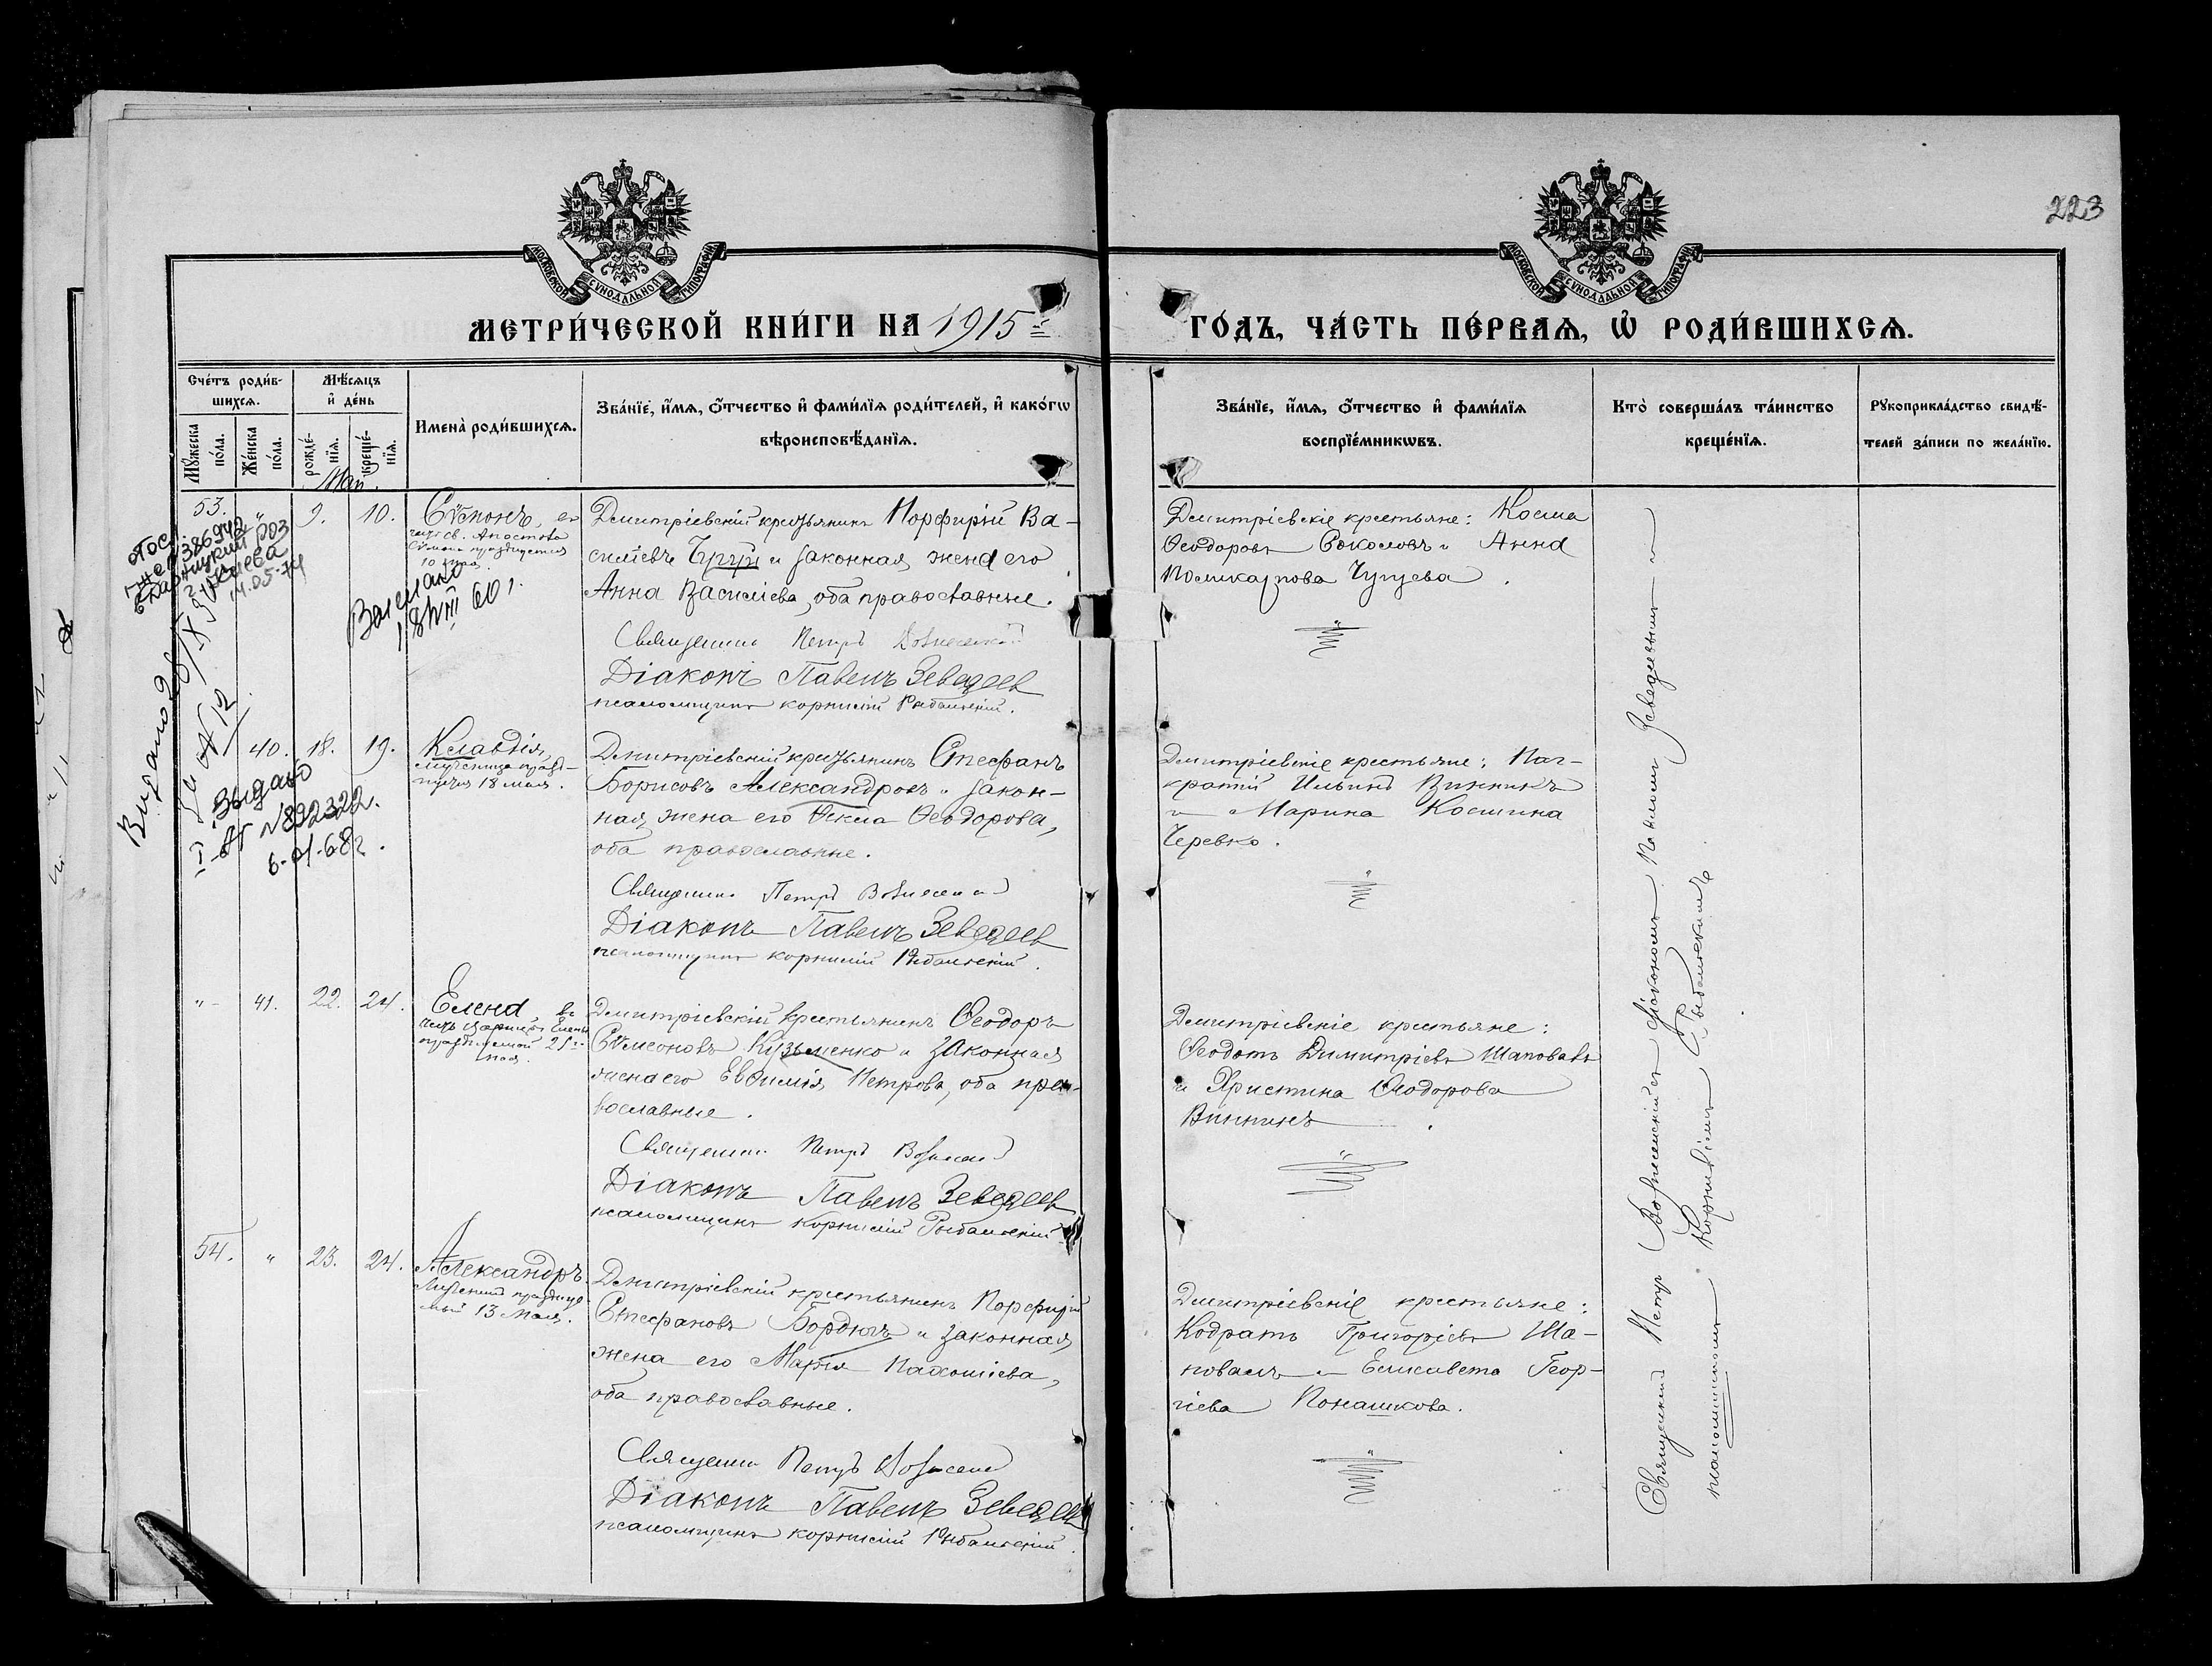 223
МОСКОВСКОЙ СѴНОДАЛЬНОЙ ТИПОГРАФІИ
МОСКОВСКОЙ СѴНОДАЛЬНОЙ ТИПОГРАФІИ
МЕТРИ́ЧЕСКОЙ КНИ́ГИ НА 1915 ГО́ДЪ, ЧА́СТЬ ПЕ́РВАѦ, Ѡ҆ РОДИ́ВШИХСѦ.
Сче́тъ роди́в-
шихсѧ.
Мꙋ́жеска по́ла.
Же́нска по́ла.
Мѣ́сѧцъ и҆ де́нь
рожде́-нїѧ.
креще́-нїѧ.
Имена̀ роди́вшихсѧ.
Зва́нїе, и҆́мѧ, ѻ҆́тчество и҆ фами́лїѧ роди́телей, и҆ како́гѡ
вѣроисповѣ́данїѧ.
Зва́нїе, и҆́мѧ, ѻ҆́тчество и҆ фами́лїѧ
воспрїе́мникѡвъ.
Кто̀ соверша́лъ та́инство
креще́нїѧ.
Рꙋкоприкла́дство свидѣ́-
телей за́писи по жела́нїю.
Май.
53. " 9. 10.
Сѵмонъ, въ
честь св. Апостола
Сѵмона празднуется
10 мая.
Дмитріевскій крестьянинъ Порфирій Ва-
силіевъ Чугуй и законная жена его
Анна Василіева, оба православные.
Священникъ Петръ Вознесенскій
Діаконъ Павелъ Зеведеев
псаломщикъ Корнилій Рыбальскій.
Дмитріевскіе крестьяне: Косма
Ѳеодоровъ Соколовъ и Анна
Поликарпова Чугуева.
Выслано
18/VIII 60 г.
г. Киева
14.05.74
40. 18. 19.
Клавдія,
мученица празд-
нуемая 18 мая.
Дмитріевскій крестьянинъ Стефанъ
Борисовъ Александрокъ и закон-
ная жена его Ѳекла Ѳеодорова,
оба православные.
Священникъ Петръ Вознесенскій
Діаконъ Павелъ Зеведеев
псаломщикъ Корнилій Рыбальскій.
Дмитріевскіе крестьяне: Пан-
кратій Ильинъ Винникъ
и Марина Космина
Черевко.
Выдано
№892322.
6.01.68г.
"- 41. 22. 24.
Елена, въ
честь царицы Елены
празднуемой 21го
мая.
Дмитріевскій крестьянинъ Ѳеодоръ
Сѵмеоновъ Кузьменко и законная
жена его Евѳимія Петрова, оба пра-
вославные.
Священникъ Петръ Вознесенскій
Діаконъ Павелъ Зеведеев
псаломщикъ Корнилій Рыбальскій
Дмитріевскіе крестьяне:
Ѳеодотъ Димитріевъ Шаповалъ
и Христина Ѳеодорова
Винникъ
54. " 23. 24.
Александръ.
Мученикъ праздную-
мый 13 мая.
Дмитріевскій крестьянинъ Порфирій
Стефановъ Бордюгъ и законная
жена его Марія Пахоміева,
оба православные.
Священникъ Петръ Вознесенскій
Діаконъ Павелъ Зеведеев
псаломщикъ Корнилій Рыбальскій.
Дмитріевскіе крестьяне:
Кодратъ Григоріевъ Ша-
повалъ и Елисавета Геор-
гіева Понашкова.
Священникъ Петръ Вознесенскій съ діакономъ Павломъ Зеведеевымъ и
псаломщикомъ Корниліемъ Рыбальскимъ.